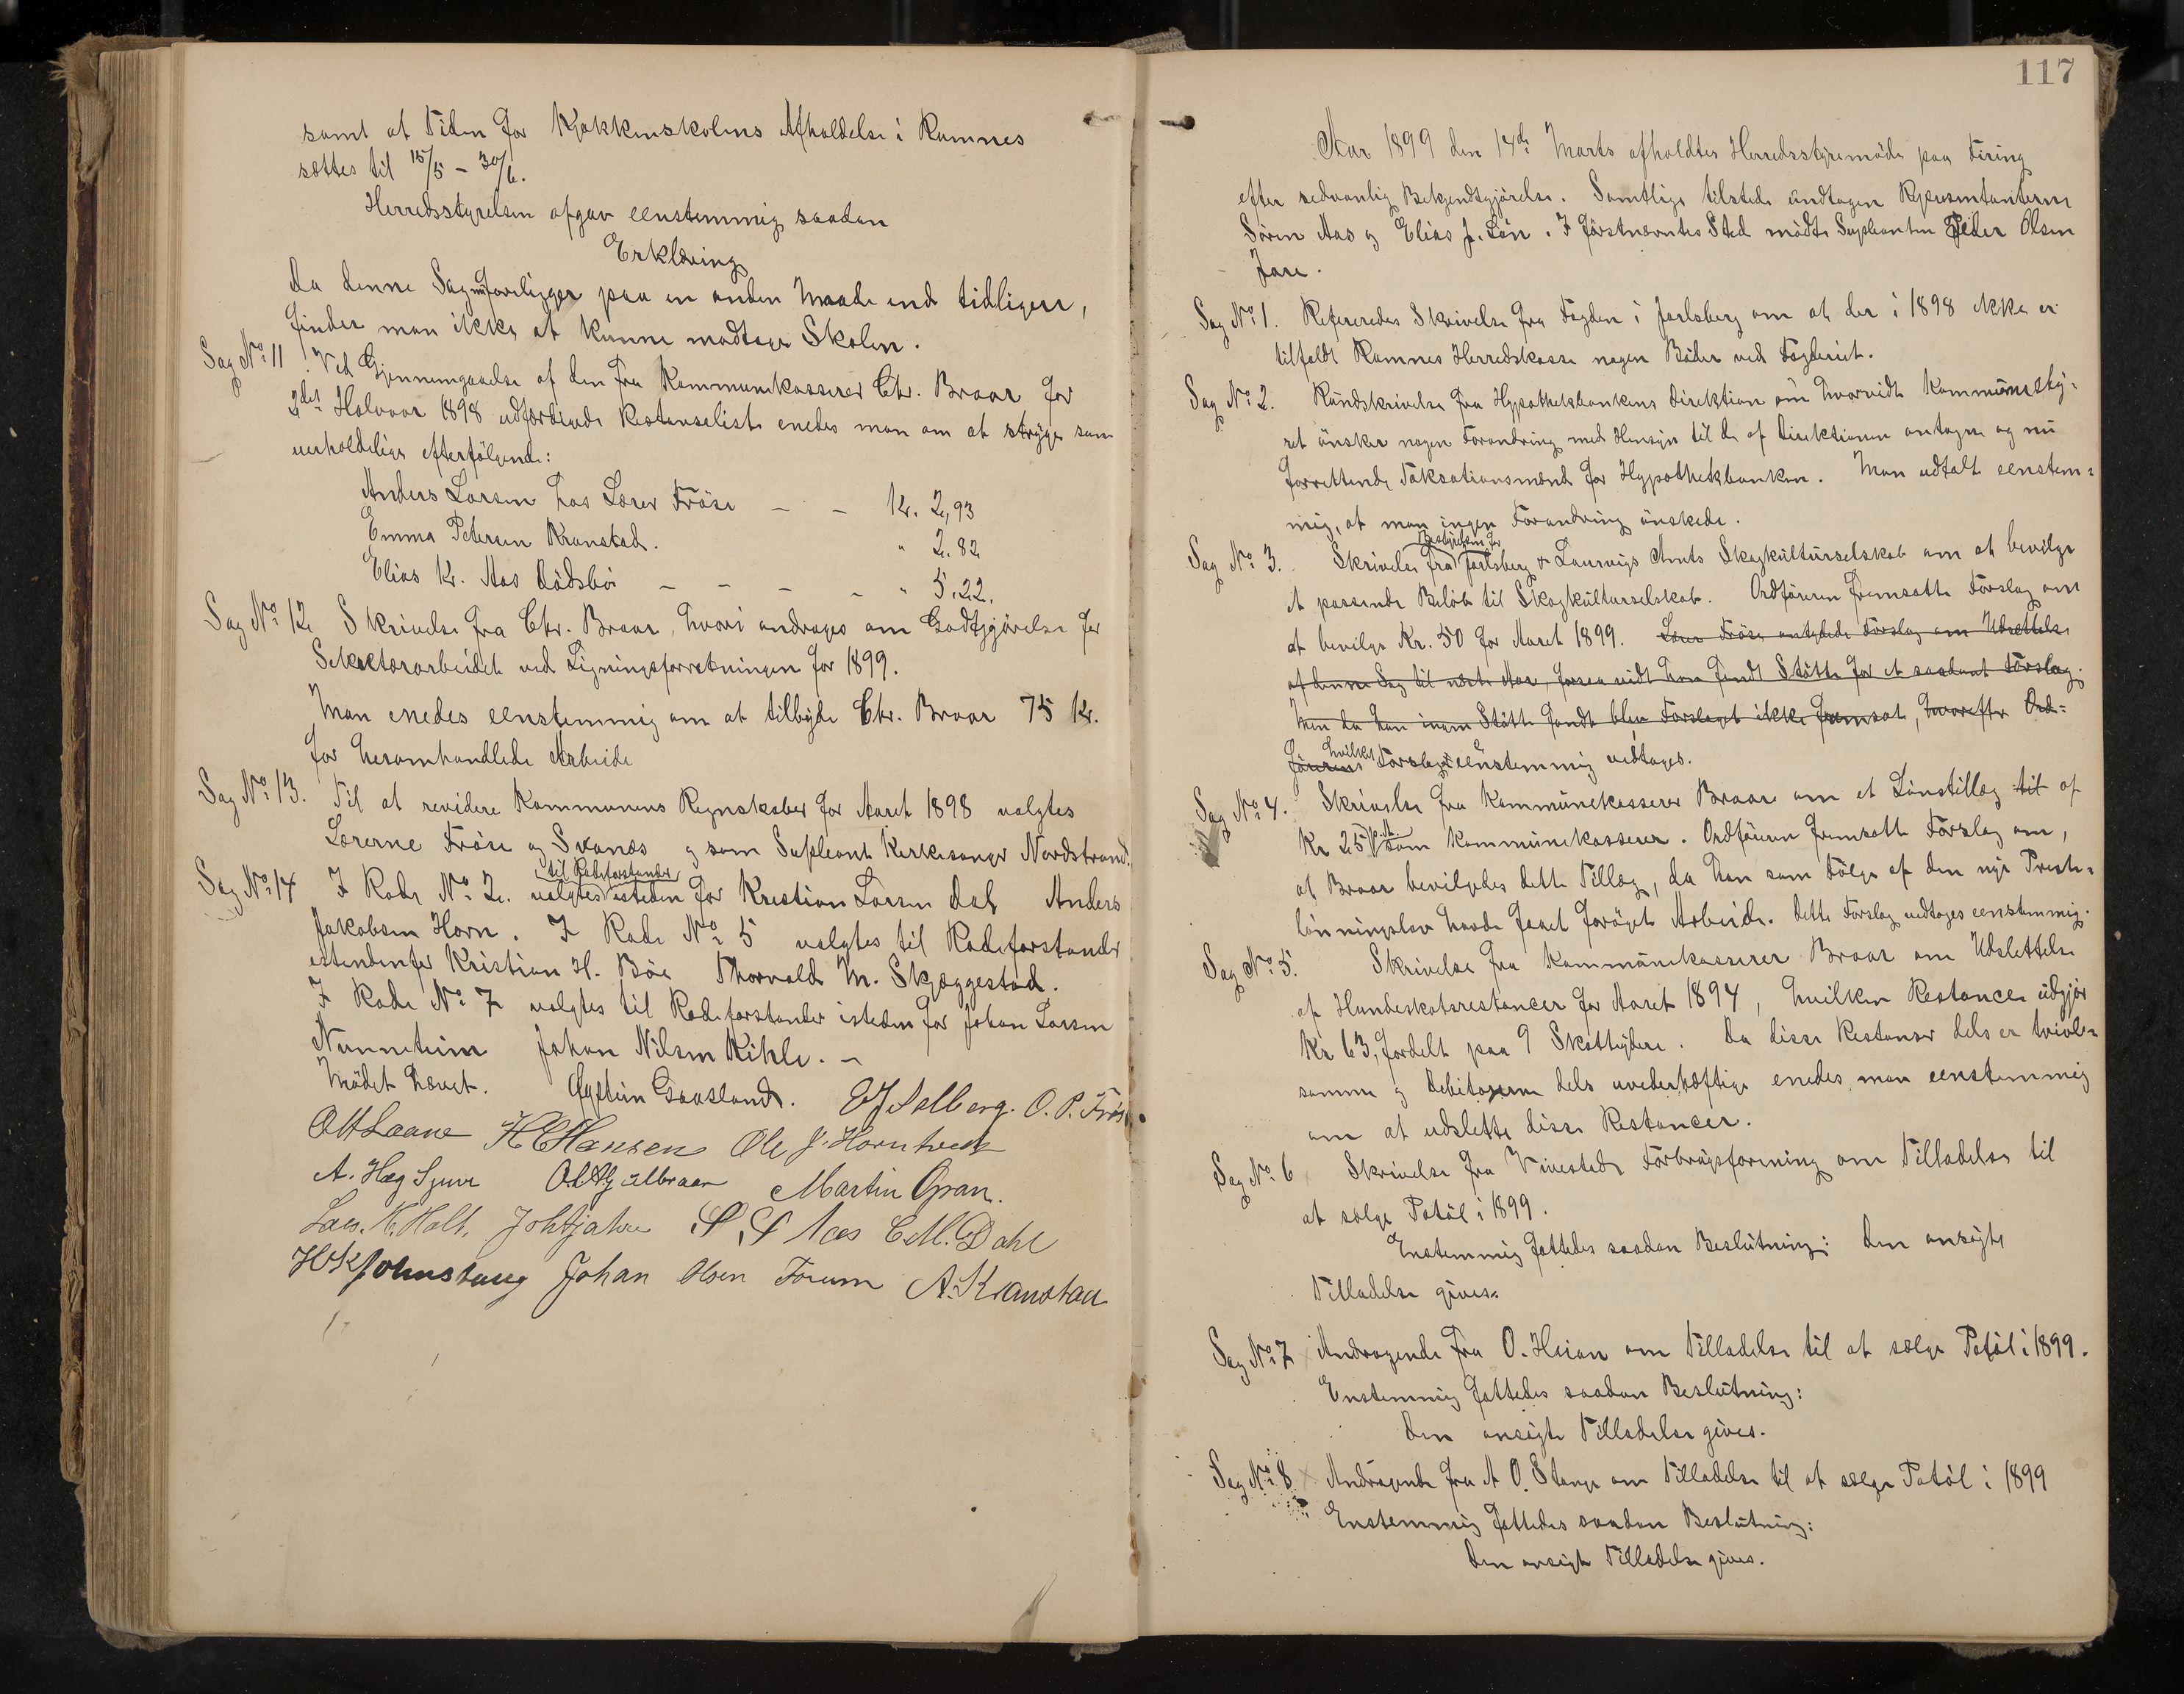 samt at Tiden for Kjøkkenskolens Afholdelse i Ramnes
sættes til 15/5 – 30/6.
Herredsstyrelsen afgav eenstemmig saadan
Erklæring
Da denne Sag nu foreligger paa en anden Maade end tidligere,
finder man ikke at kunne modtage Skolen.
Sag No 11 Ved Gjennemgaaelse af den fra Kommunekasserer Chr. Braar for
2det Halvaar 1898 udfærdigede Restanseliste enedes man om at stryge som
uerholdelige efterfølgende:
Anders Larsen hos Lærer Fröse – – Kr. 2,93
Emma Petersen Kranstad. " 2.82
Elias Kr. Aas Dødsbo – – – – " 5.22.
Sag No 12 Skrivelse fra Chr. Braar, hvori andrages om Godtgjörelse for
Sekretærarbeidet ved Ligningsforretningen for 1899.
Man enedes eenstemmig om at tilbyde Chr. Braar 75 Kr.
for heromhandlede Arbeide
Sag No 13. Til at revidere Kommunens Regnskaber for Aaret 1898 valgtes
Lærerne Fröse og Svanæs og som Supleant Kirkesanger Nordstrand.
til Rodeforstander
Sag No 14 I Rode No 2. valgtes isteden for Kristian Larsen Dal Anders
Jakobsen Horn. I Rode No 5 valgtes til Rodeforstander
istedenfor Kristian H. Böe Thorvald M. Skjæggestad.
I Rode No 7 valgtes til Rodeforstander isteden for Johan Larsen
Johan Nilsen Kihle. –
Mödet hævet. Gaasland. O. P. Frös
Ott Laane H C Hansen Ole J. Horntvedt
A. Høg Martin Gran.
Lars. K. Holt. S. S Aas C. M. Dahl
Johan Olsen A. Kranstad
117
Aar 1899 den 14de Marts afholdtes Herredsstyremöde paa Fering
efter sedvanlig Bekjendtgjörelse. Samtlige tilstede undtagen Repræsentanterne
Sören Aas og Elias J. Lön. I förstnævntes Sted mödte Supleanten Peder Olsen
Jare.
Sag No 1. Refereredes Skrivelse fra Fogden i Jarlsberg om at der i 1898 ikke er
tilfaldt Ramnes Herredskasse nogen Böder ved Fogderiet.
Sag No 2. Rundskrivelse fra Hypothekbankens Direktion om hvorvidt Kommunesty-
ret önsker nogen Forandring med Hensyn til de af Direktionen antagne og nu
forrettende Taksationsmænd for Hypothekbanken. Man udtalte eenstem-
mig, at man ingen Forandring önskede.
Bestyrelsen for
Sag No 3. Skrivelse fra Jarlsberg & Laurvigs Amts Skogkulturselskab om at bevilge
et passende Belöb til Skogkulturselskab. Ordföreren fremsatte Forslag om
at bevilge Kr. 50 for Aaret 1899. Lærer Fröse antydede Forslag om Udsættelse
af denne Sag til næste Aar, forsaa vidt han fandt Stötte for et saadant Forslag.
Men da han ingen Stötte fandt blev Forslaget ikke fremsat, hvorefter Ord-
hvilket
förerens Forslag eenstemmig vedtoges.
Sag No 4. Skrivelse fra Kommunekasserer Braar om et Lönstillæg til af
Kr 25 p. A. som Kommunekasserer. Ordföreren fremsatte Forslag om,
at Braar bevilgedes dette Tillæg, da han som Fölge af den nye Preste-
lönningslov havde faaet foröget Arbeide. Dette Forslag vedtoges eenstemmig.
Sag No 5. Skrivelse fra Kommunekasserer Braar om Udslettelse
af Hundeskatsrestancer for Aaret 1894, hvilken Restance udgjör
Kr 63, fordelt paa 9 Skatteydere. Da disse Restanser dels er tvivl-
somme og Debitorerne dels uvederhæftige enedes man eenstemmig
om at udslette disse Restancer.
Sag No 6 Skrivelse fra Vivestad Forbrugsforening om Tilladelse til
at sælge Patöl i 1899.
Enstemmig fattedes saadan Beslutning: Den ansögte
Tilladelse gives.
Sag No 7 Andragende fra O. Heian om Tilladelse til at sælge Patöl i 1899.
Enstemmig fattedes saadan Beslutning:
Den ansögte Tilladelse gives.
Sag No 8 Andragende fra A O. Stange om Tilladelse til at sælge Patöl i 1899
Enstemmig fattedes saadan Beslutning:
Den ansögte Tilladelse gives.